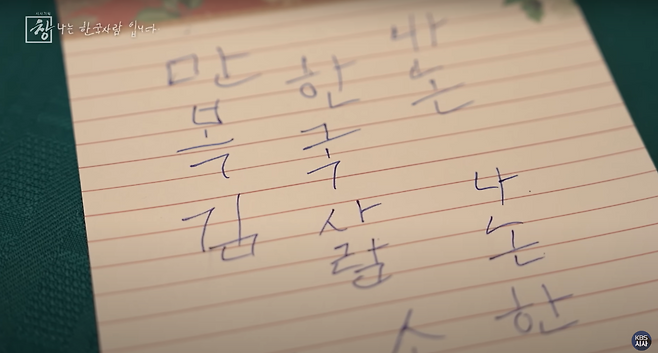 시사기획
창 나는 한국사람 입니다
나는 나는 한
한국사람
만복김
KBS
시사